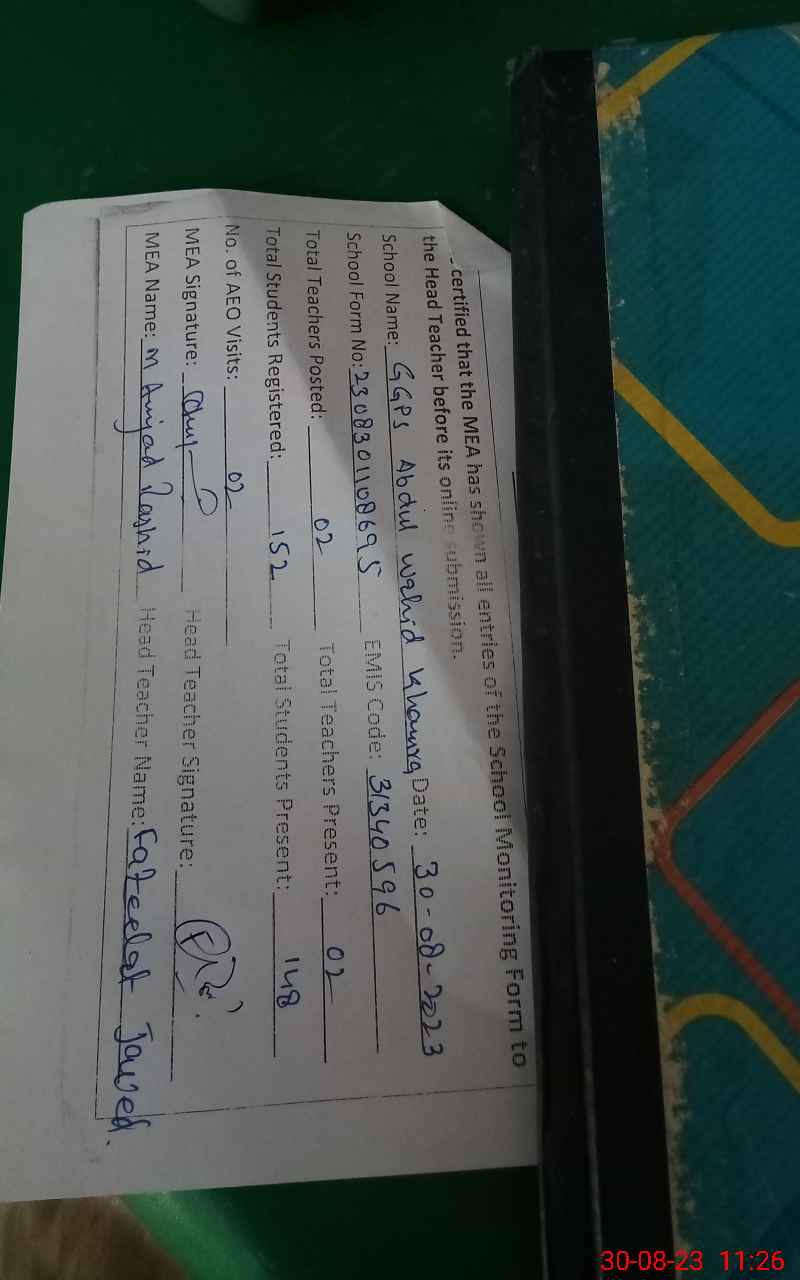 certified that the MEA has shown all entries of the School Monitoring Form to
the Head Teacher before its online submission.
School Name: GGPS Abdul Wahid Khanwra Date: 30-08-2023
School Form No: 2308301108695 EMIS Code: 31340596
Total Teachers Posted: 02 Total Teachers Present: 02
Total Students Registered: 152 Total Students Present: 148
No. of AEO Visits: 02
MEA Signature: Head Teacher Signature:
MEA Name: M Amjad Rashid Head Teacher Name: Fazeelat Javed.
30-08-23 11:26